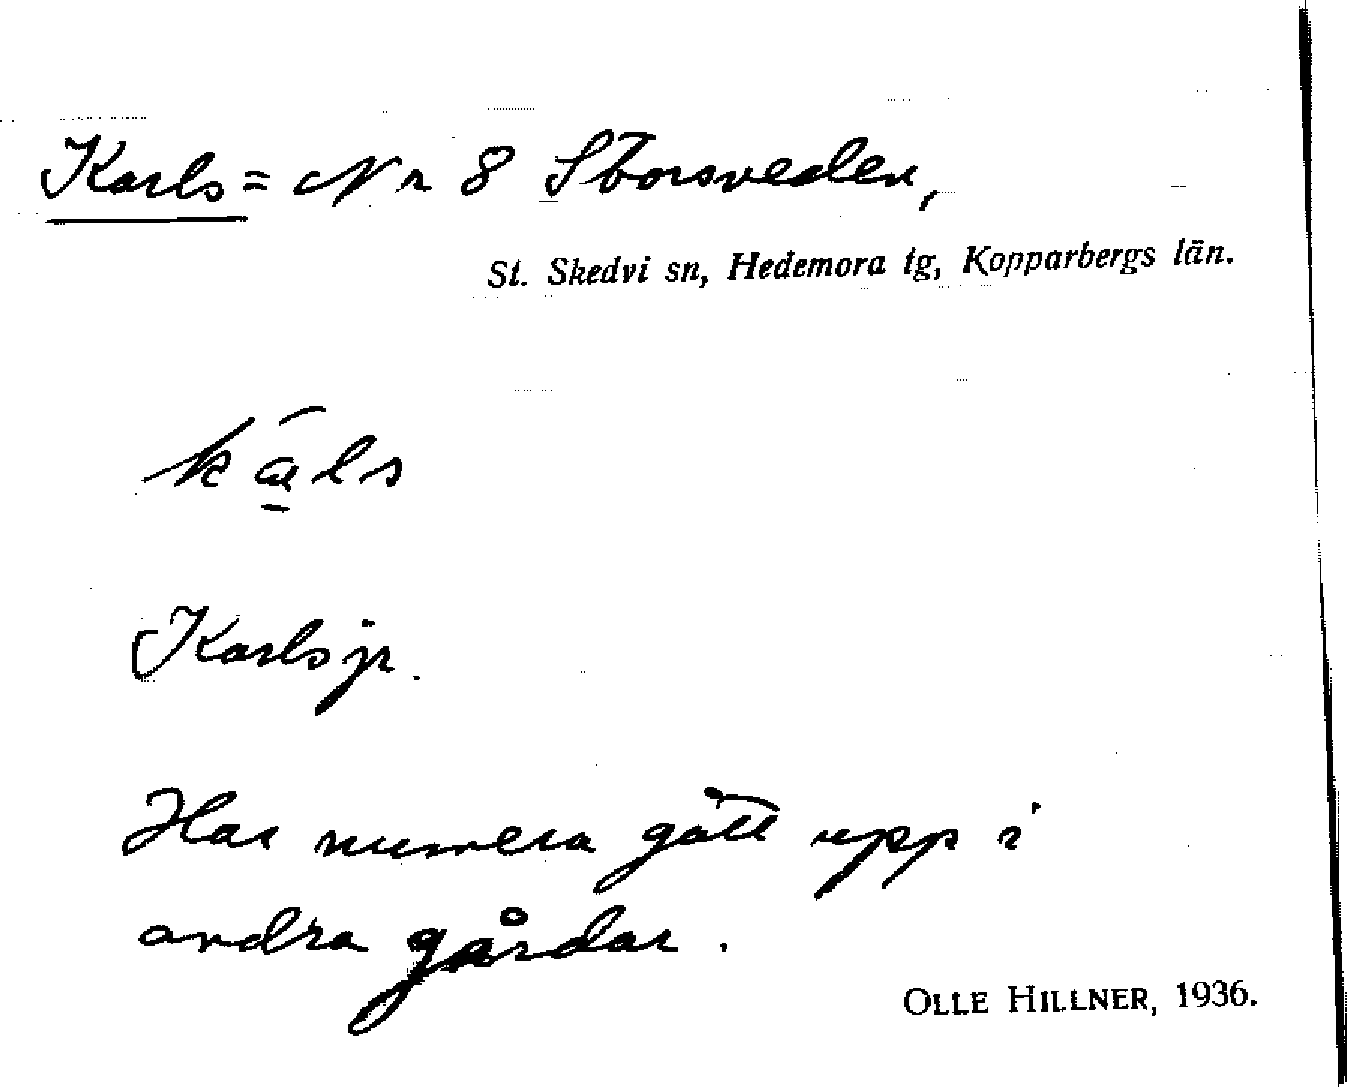 Karls = Nr 8 Storsveden,
St. Skedvi sn, Hedemora tg, Kopparbergs län.
kāls
Karlsjr.
Har numera gått upp i
andra gårdar.
OLLE HILLNER, 1936.